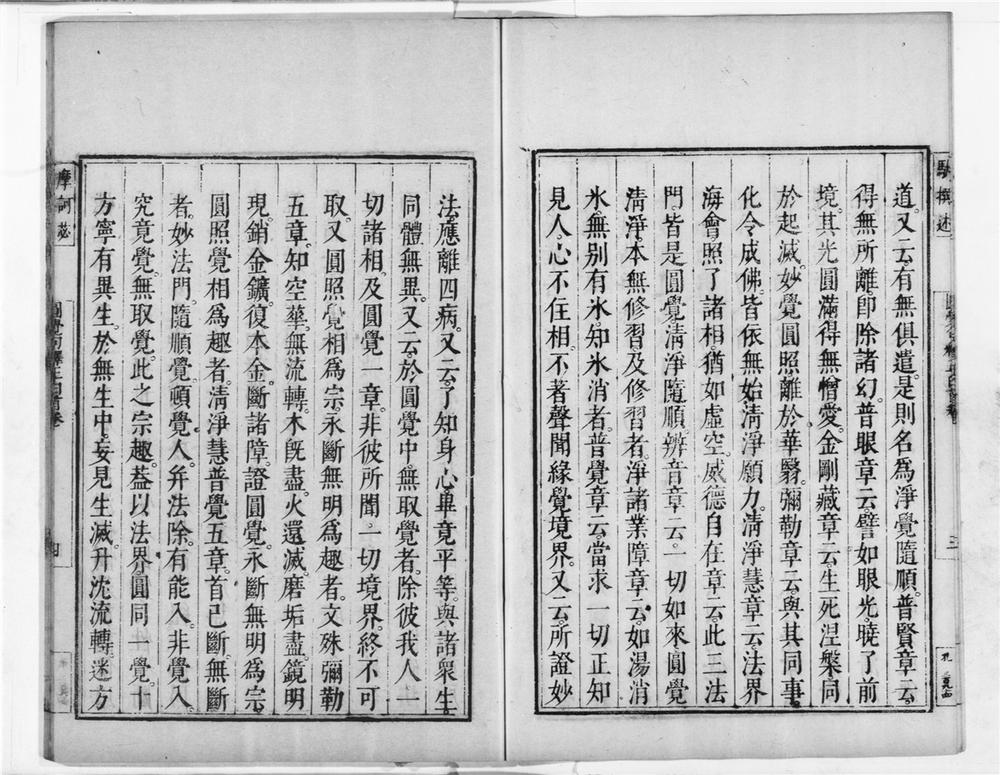 撰述
三
道。又云。有無俱遣。是則名為淨覺隨順。普賢章云。
得無所離。卽除諸幻。普眼章云。譬如眼光。曉了前
境。其光圓滿。得無憎愛。金剛藏章云。生死涅槃。同
於起滅。妙覺圓照。離於華翳。彌勒章云。與其同事。
化令成佛。皆依無始清淨願力。清淨慧章云。法界
海會。照了諸相。猶如虛空。威德自在章云。此三法
門。皆是圓覺清淨隨順。辨音章云。一切如來。圓覺
清淨。本無修習。及修習者。淨諸業障章云。如湯消
氷。無別有氷。知氷消者。普覺章云。當求一切正知
見人。心不住相。不著聲聞緣覺境界。又云。所證妙
法。應離四病。又云。了知身心畢竟平等。與諸衆生
同體無異。又云。於圓覺中。無取覺者。除彼我人一
切諸相。及圓覺一章。非彼所聞。一切境界。終不可
取。又圓照覺相爲宗。永斷無明爲趣者。文殊彌勒
五章。知空華。無流轉。木旣盡。火還滅。磨垢盡。鏡明
現。銷金鑛。復本金。斷諸障。證圓覺。永斷無明爲宗。
圓照覺相爲趣者。淸淨慧普覺五章。首已斷。無斷
者。妙法門。隨順覺。頓覺人。幷法除。有能入。非覺入。
究竟覺。無取覺。此之宗趣。葢以法界圓同一覺。十
方寧有異生。於無生中。妄見生滅。升沈流轉。迷方
摩訶苾
四